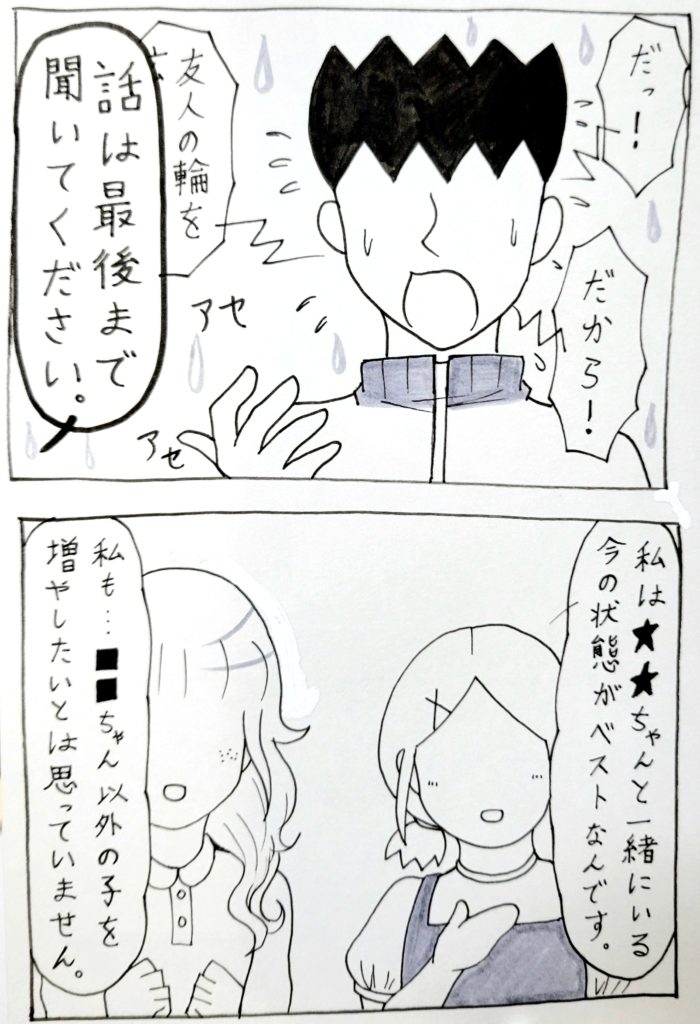 だっ!
だから!
友人の輪を
広
話は最後まで
聞いてください。
アセ
アセ
私は★★ちゃんと一緒にいる
今の状態がベストなんです。
私も…■■ちゃん以外の子を
増やしたいとは思っていません。